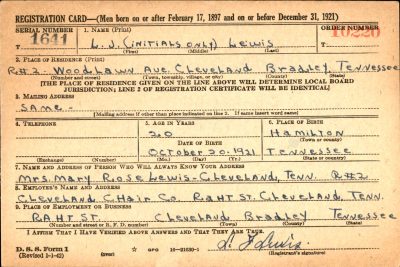 REGISTRATION CARD—(Men born on or after February 17, 1897 and on or before December 31, 1921)
SERIAL NUMBER 1. NAME (Print) ORDER NUMBER
1641 L. J. (INITIALS ONLY) Lewis 10220
(First) (Middle) (Last)
2. PLACE OF RESIDENCE (Print)
R#2. Woodlawn Ave. Cleveland Bradley Tennessee
(Number and street) (Town, township, village, or city) (County) (State)
[THE PLACE OF RESIDENCE GIVEN ON THE LINE ABOVE WILL DETERMINE LOCAL BOARD
JURISDICTION; LINE 2 OF REGISTRATION CERTIFICATE WILL BE IDENTICAL]
3. MAILING ADDRESS
Same -
[Mailing address if other than place indicated on line 2. If same insert word same]
4. TELEPHONE 5. AGE IN YEARS 6. PLACE OF BIRTH
20 Hamilton
DATE OF BIRTH (Town or county)
October 20. 1921 Tennessee
(Exchange) (Number) (Mo.) (Day) (Yr.) (State or country)
7. NAME AND ADDRESS OF PERSON WHO WILL ALWAYS KNOW YOUR ADDRESS
Mrs. Mary Rose Lewis- Cleveland, Tenn. R#2
8. EMPLOYER'S NAME AND ADDRESS
Cleveland Chair Co. Raht St. Cleveland, Tenn.
9. PLACE OF EMPLOYMENT OR BUSINESS
Raht St. Cleveland Bradley Tennessee
(Number and street or R. F. D. number) (Town) (County) (State)
I AFFIRM THAT I HAVE VERIFIED ABOVE ANSWERS AND THAT THEY ARE TRUE.
D. S. S. Form 1
(Revised 1-1-42) (over) GPO 16-21630-1 L. J. Lewis
(Registrant's signature)